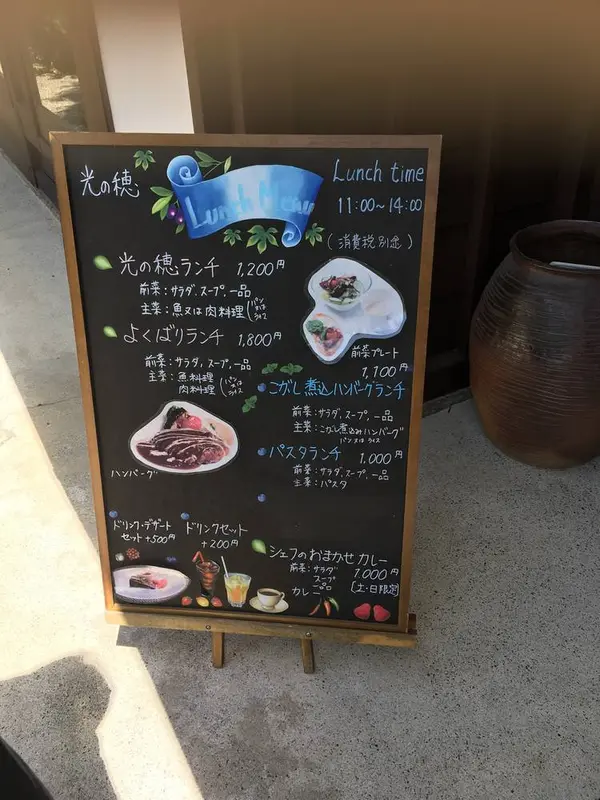 光の穂
Lunch Menu
Lunch time
11:00～14:00
(消費税別途)
光の穂ランチ 1,200円
前菜:サラダ,スープ,一品
主菜:魚又は肉料理(パン又はライス
よくばりランチ 1,800円
前菜:サラダ,スープ,一品
主菜:魚料理
肉料理(パン又はライス
ハンバーグ
前菜プレート
1,100円
こがし煮込ハンバーグランチ
前菜:サラダ,スープ,一品
主菜:こがし煮込みハンバーグ
パン又はライス
パスタランチ 1,000円
前菜:サラダ,スープ,一品
主菜:パスタ
ドリンク・デザート
セット+500円
ドリンクセット
+200円
シェフのおまかせカレー
前菜:サラダ 1,000円
スープ
一品
カレー [土・日限定]